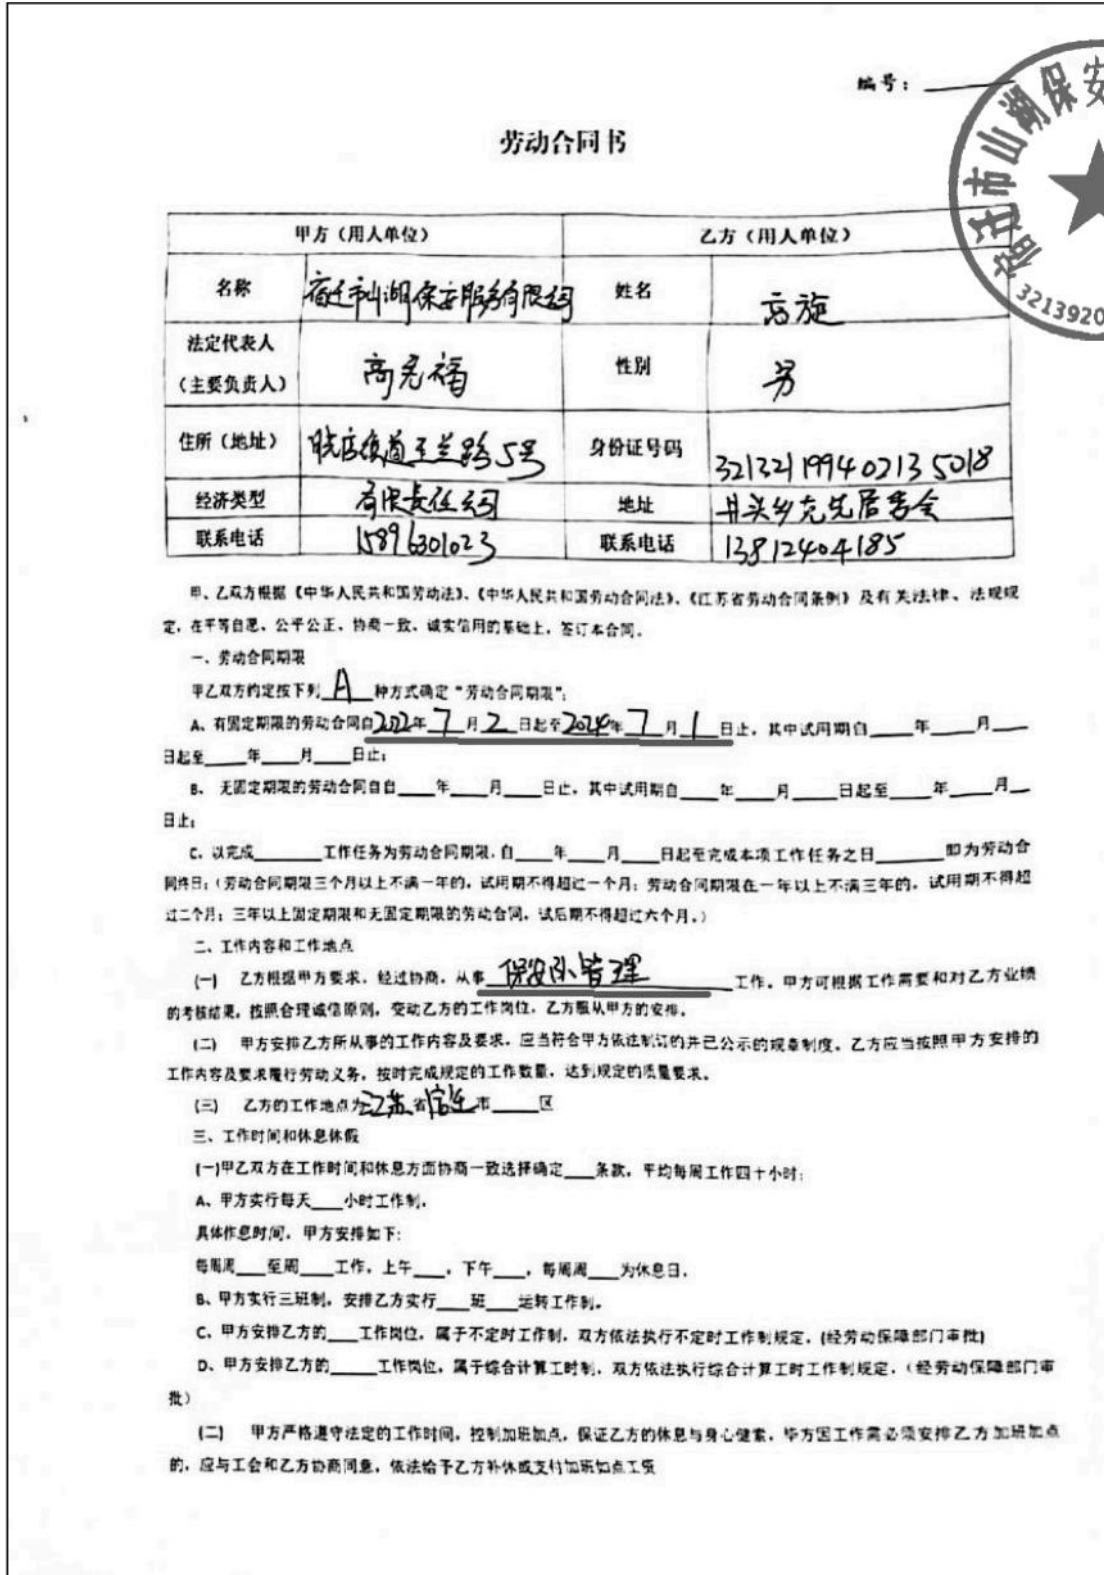 编号：
宿迁市山湖保安
3213920
劳动合同书
甲方（用人单位） 乙方（用人单位）
名称 宿迁市山湖保安服务有限公司 姓名 高旋
法定代表人（主要负责人） 高 福 性别 男
住所（地址） 晓店 道玉兰路5号 身份证号码 321321199402135018
经济类型 有限责任公司 地址 井头乡 居委会
联系电话 15896301023 联系电话 13812404185
甲、乙双方根据《中华人民共和国劳动法》、《中华人民共和国劳动合同法》、《江苏省劳动合同条例》及有关法律、法规规
定，在平等自愿、公平公正、协商一致、诚实信用的基础上，签订本合同。
一、劳动合同期限
甲乙双方约定按下列 A 种方式确定“劳动合同期限”；
A、有固定期限的劳动合同自2022年 7 月 2 日起至2024年 7 月 1 日止，其中试用期自____年____月____
日起至____年____月____日止；
B、 无固定期限的劳动合同自自____年____月____日止，其中试用期自____年____月____日起至____年____月__
日止；
C、以完成______工作任务为劳动合同期限，自____年____月____日起至完成本项工作任务之日______即为劳动合
同终日；（劳动合同期限三个月以上不满一年的，试用期不得超过一个月；劳动合同期限在一年以上不满三年的，试用期不得超
过二个月；三年以上固定期限和无固定期限的劳动合同，试后期不得超过六个月。）
二、工作内容和工作地点
(一) 乙方根据甲方要求，经过协商，从事 保安队管理 工作。甲方可根据工作需要和对乙方业绩
的考核结果，按照合理诚信原则，变动乙方的工作岗位，乙方服从甲方的安排。
(二) 甲方安排乙方所从事的工作内容及要求，应当符合甲方依法制订的并已公示的规章制度。乙方应当按照甲方安排的
工作内容及要求履行劳动义务，按时完成规定的工作数量，达到规定的质量要求。
(三) 乙方的工作地点为江苏省宿迁市____区
三、工作时间和休息休假
(一)甲乙双方在工作时间和休息方面协商一致选择确定___条款，平均每周工作四十小时：
A、甲方实行每天___小时工作制。
具体作息时间，甲方安排如下：
每周周___至周___工作，上午___，下午___，每周周___为休息日。
B、甲方实行三班制，安排乙方实行___班___运转工作制。
C、甲方安排乙方的___工作岗位，属于不定时工作制，双方依法执行不定时工作制规定，(经劳动保障部门审批)
D、甲方安排乙方的_____工作岗位，属于综合计算工时制，双方依法执行综合计算工时工作制规定，（经劳动保障部门审
批）
(二) 甲方严格遵守法定的工作时间，控制加班加点，保证乙方的休息与身心健康，毕方因工作需必须安排乙方加班加点
的，应与工会和乙方协商同意，依法给予乙方补休或支付加班加点工资